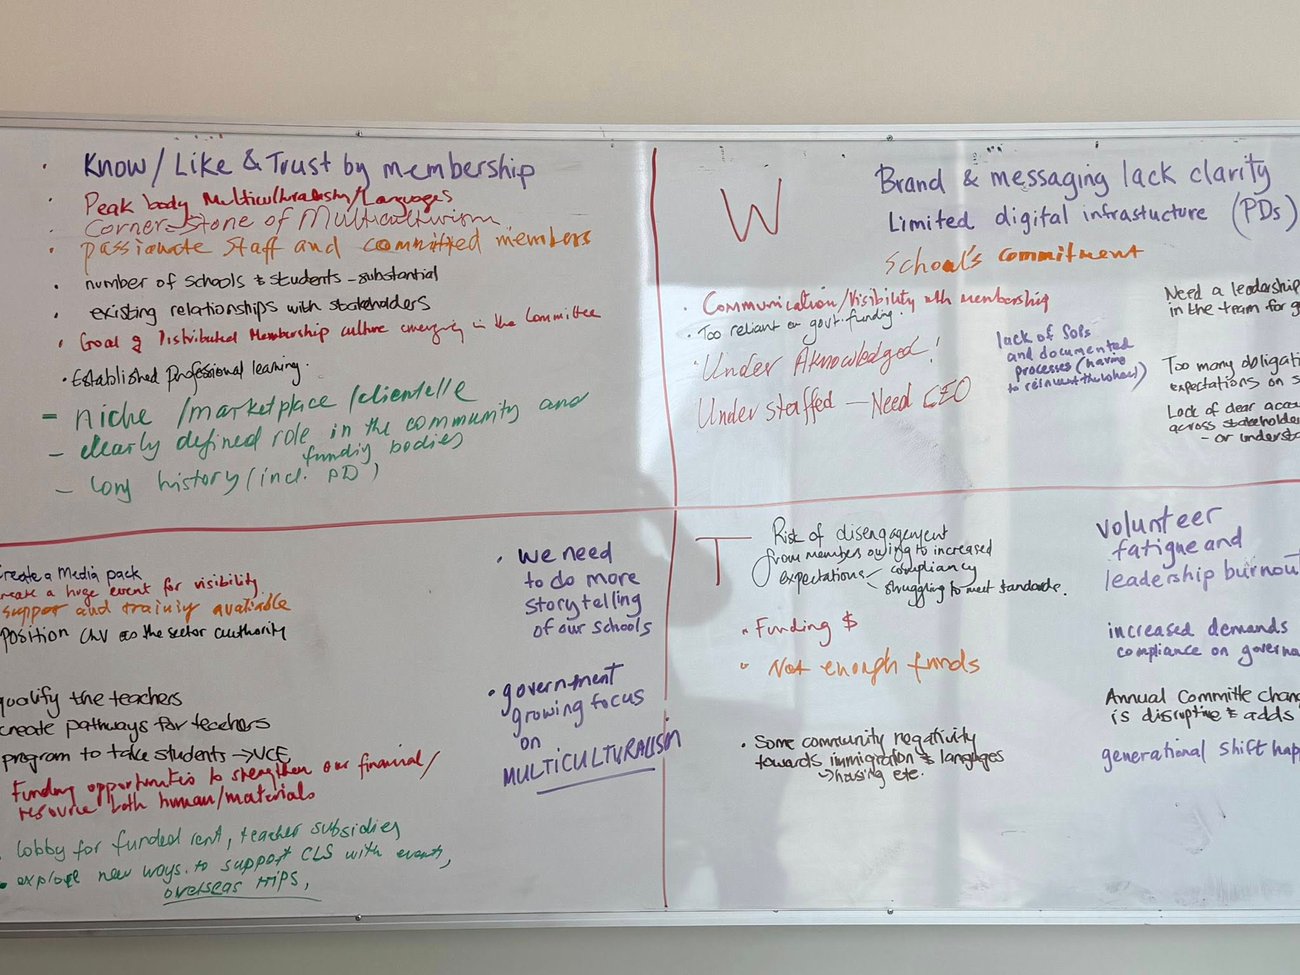 Know/Like & Trust by membership
Peak body Multiculturalism/Languages
Corner-stone of Multiculturism
passionate staff and committed members
number of schools & students - substantial
existing relationships with stakeholders
Goal of Distributed Membership culture emerging in the Committee
Established professional learning.
- niche /marketplace /clientelle
- clearly defined role in the community and
funding bodies
- long history (incl. PD)
W
Brand & messaging lack clarity
Limited digital infrastucture (PDs)
School's commitment
Communication/Visibility with membership
Too reliant on govt. funding.
Under Aknowledged!
Understaffed - Need CEO
lack of SOPs
and documented
processes (having
to reinvent the wheel)
Need a leadership
in the team for
Too many obligati
expectations on s
Lack of clear acco
across stakeholder
- or understa
Create a Media pack
create a huge event for visibility
support and training available
position CLV as the sector authority
qualify the teachers
create pathways for teachers
program to take students → VCE
Funding opportunities to strengthen our financial/
resource both human/materials
lobby for funded rent, teacher subsidies
explore new ways. to support CLS with events,
overseas trips,
we need
to do more
storytelling
of our schools
government
growing focus
on
MULTICULTURALISM
T
Risk of disengagement
from members owing to increased
expectations < compliancy
struggling to meet standards.
Funding $
Not enough funds
Some community negativity
towards immigration & languages
↳ housing etc.
volunteer
fatigue and
leadership burnout
increased demands
compliance on governa
Annual Committe chang
is disruptive & adds
generational shift happ